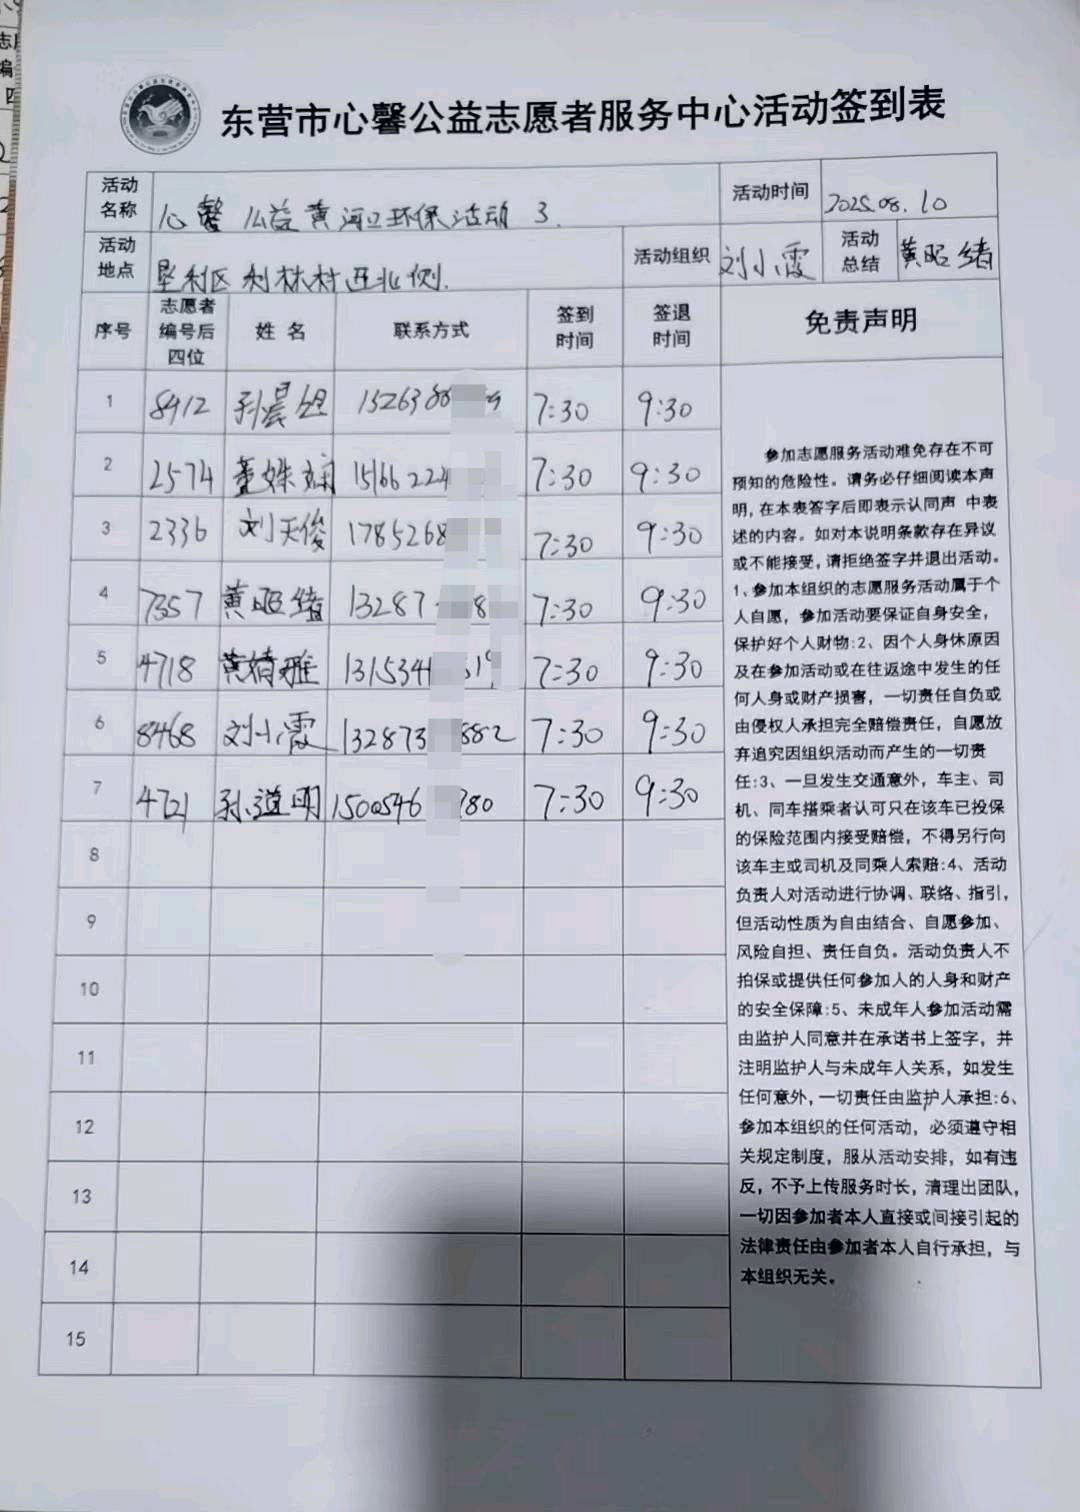 东营市心馨公益志愿者服务中心活动签到表
活动名称 心馨公益黄河口环保活动3. 活动时间 2025.08.10
活动地点 垦利区利林村西北侧. 活动组织 刘小霞 活动总结 黄昭绪
序号 志愿者编号后四位 姓名 联系方式 签到时间 签退时间 免责声明
1 8912 15263 7:30 9:30
2 2574 15166224 7:30 9:30
3 2336 刘天俊 1785268 7:30 9:30
4 7357 黄昭绪 13287 8 7:30 9:30
5 4718 黄婧雅 1315341 519 7:30 9:30
6 8468 刘小霞 132873 882 7:30 9:30
7 4721 孙道明 1500546 780 7:30 9:30
8
9
10
11
12
13
14
15
参加志愿服务活动难免存在不可
预知的危险性。请务必仔细阅读本声
明,在本表签字后即表示认同声 中表
述的内容。如对本说明条款存在异议
或不能接受,请拒绝签字并退出活动。
1、参加本组织的志愿服务活动属于个
人自愿，参加活动要保证自身安全，
保护好个人财物:2、因个人身休原因
及在参加活动或在往返途中发生的任
何人身或财产损害，一切责任自负或
由侵权人承担完全赔偿责任，自愿放
弃追究因组织活动而产生的一切责
任:3、一旦发生交通意外，车主、司
机、同车搭乘者认可只在该车已投保
的保险范围内接受赔偿，不得另行向
该车主或司机及同乘人索赔:4、活动
负责人对活动进行协调、联络、指引，
但活动性质为自由结合、自愿参加、
风险自担、责任自负。活动负责人不
拍保或提供任何参加人的人身和财产
的安全保障:5、未成年人参加活动需
由监护人同意并在承诺书上签字，并
注明监护人与未成年人关系，如发生
任何意外,一切责任由监护人承担:6、
参加本组织的任何活动，必须遵守相
关规定制度，服从活动安排，如有违
反，不予上传服务时长，清理出团队，
一切因参加者本人直接或间接引起的
法律责任由参加者本人自行承担，与
本组织无关。